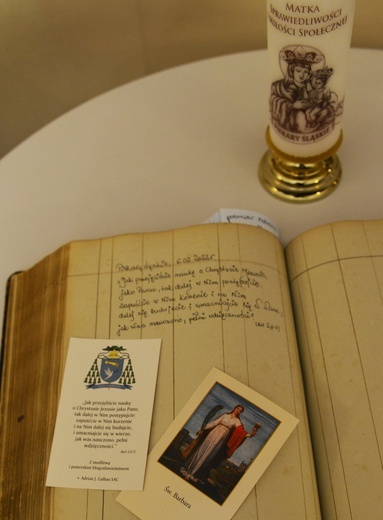 MATKA
SPRAWIEDLIWOŚCI
I MIŁOŚCI SPOŁECZNEJ
PIEKARY ŚLĄSKIE
Piekary Śląskie,
„Jak przejęliście naukę o Chrystusie Jezusie
jako Panu, tak dalej w Nim postępujcie:
zapuśćcie w Nim korzenie i na Nim
dalej się budujcie i umacniajcie się
jak was nauczono, pełni wdzięczności”
„Jak przejęliście naukę
o Chrystusie Jezusie jako Panu,
tak dalej w Nim postępujcie:
zapuśćcie w Nim korzenie
i na Nim dalej się budujcie,
i umacniajcie się w wierze,
jak was nauczono, pełni
wdzięczności.”
Kol 2,6-7
Z modlitwą
i pasterskim błogosławieństwem
+ Adrian J. Galbas SAC
Św. Barbara